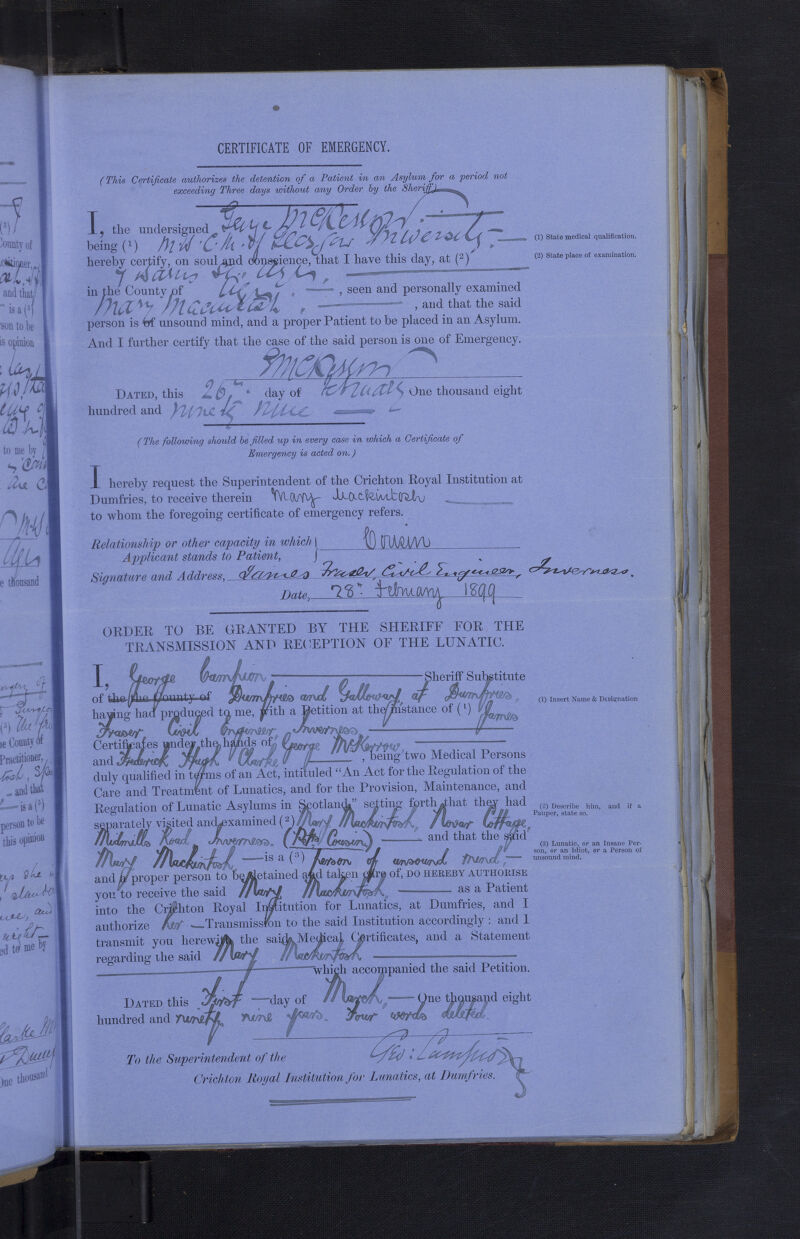 CERTIFICATE OF EMERGENCY.
(This Certificate authorizes the detention of a Patient in an Asylum for a period not
exceeding Three days without any Order by the Sheriff.)
I, the undersigned George McKerrow
being (1) M.D. C.M. of Glasgow University (1) State medical qualification.
hereby certify, on soul and conscience, that I have this day, at (2) (2) State place of examination.
7 Ayr,
in the County of Ayr, seen and personally examined
Mary Macintosh, and that the said
person is of unsound mind, and a proper Patient to be placed in an Asylum.
And I further certify that the case of the said person is one of Emergency.
McKerrow
DATED, this 26th day of February One thousand eight
hundred and ninety nine
(The following should be filled up in every case in which a Certificate of
Emergency is acted on.)
I hereby request the Superintendent of the Crichton Royal Institution at
Dumfries, to receive therein Mary Mackintosh
to whom the foregoing certificate of emergency refers.
Relationship or other capacity in which
Applicant stands to Patient, } Cousin
Signature and Address, James Fraser, Civil Engineer, Inverness.
Date, 28th February 1899
ORDER TO BE GRANTED BY THE SHERIFF FOR THE
TRANSMISSION AND RECEPTION OF THE LUNATIC.
I, George Campion Sheriff Substitute
of the County of Dumfries and Galloway, at Dumfries, (1) Insert Name & Designation
having had produced to me, with a Petition at the instance of (1) James
Fraser, Civil Engineer, Inverness,
Certificates under the hands of George McKerrow,
and Frederick Hugh Clarke, being two Medical Persons
duly qualified in terms of an Act, intituled "An Act for the Regulation of the
Care and Treatment of Lunatics, and for the Provision, Maintenance, and
Regulation of Lunatic Asylums in Scotland," setting forth that they had (2) Describe him, and if a
Pauper, state so.
separately visited and examined (2) Mary Mackintosh, Novar Cottage,
Midmills Road, Inverness. (Cousin) and that the said
Mary Mackintosh, is a (3) person of unsound mind, (3) Lunatic, or an Insane Per-
son, or an Idiot, or a Person of
unsound mind.
and a proper person to be detained and taken care of, DO HEREBY AUTHORISE
you to receive the said Mary Mackintosh, as a Patient
into the Crichton Royal Institution for Lunatics, at Dumfries, and I
authorize her Transmission to the said Institution accordingly : and I
transmit you herewith the said Medical Certificates, and a Statement
regarding the said Mary Mackintosh,
which accompanied the said Petition.
DATED this First day of March, One thousand eight
hundred and ninety nine years. Four words deleted.
Geo: Campion
To the Superintendent of the
Crichton Royal Institution for Lunatics, at Dumfries.